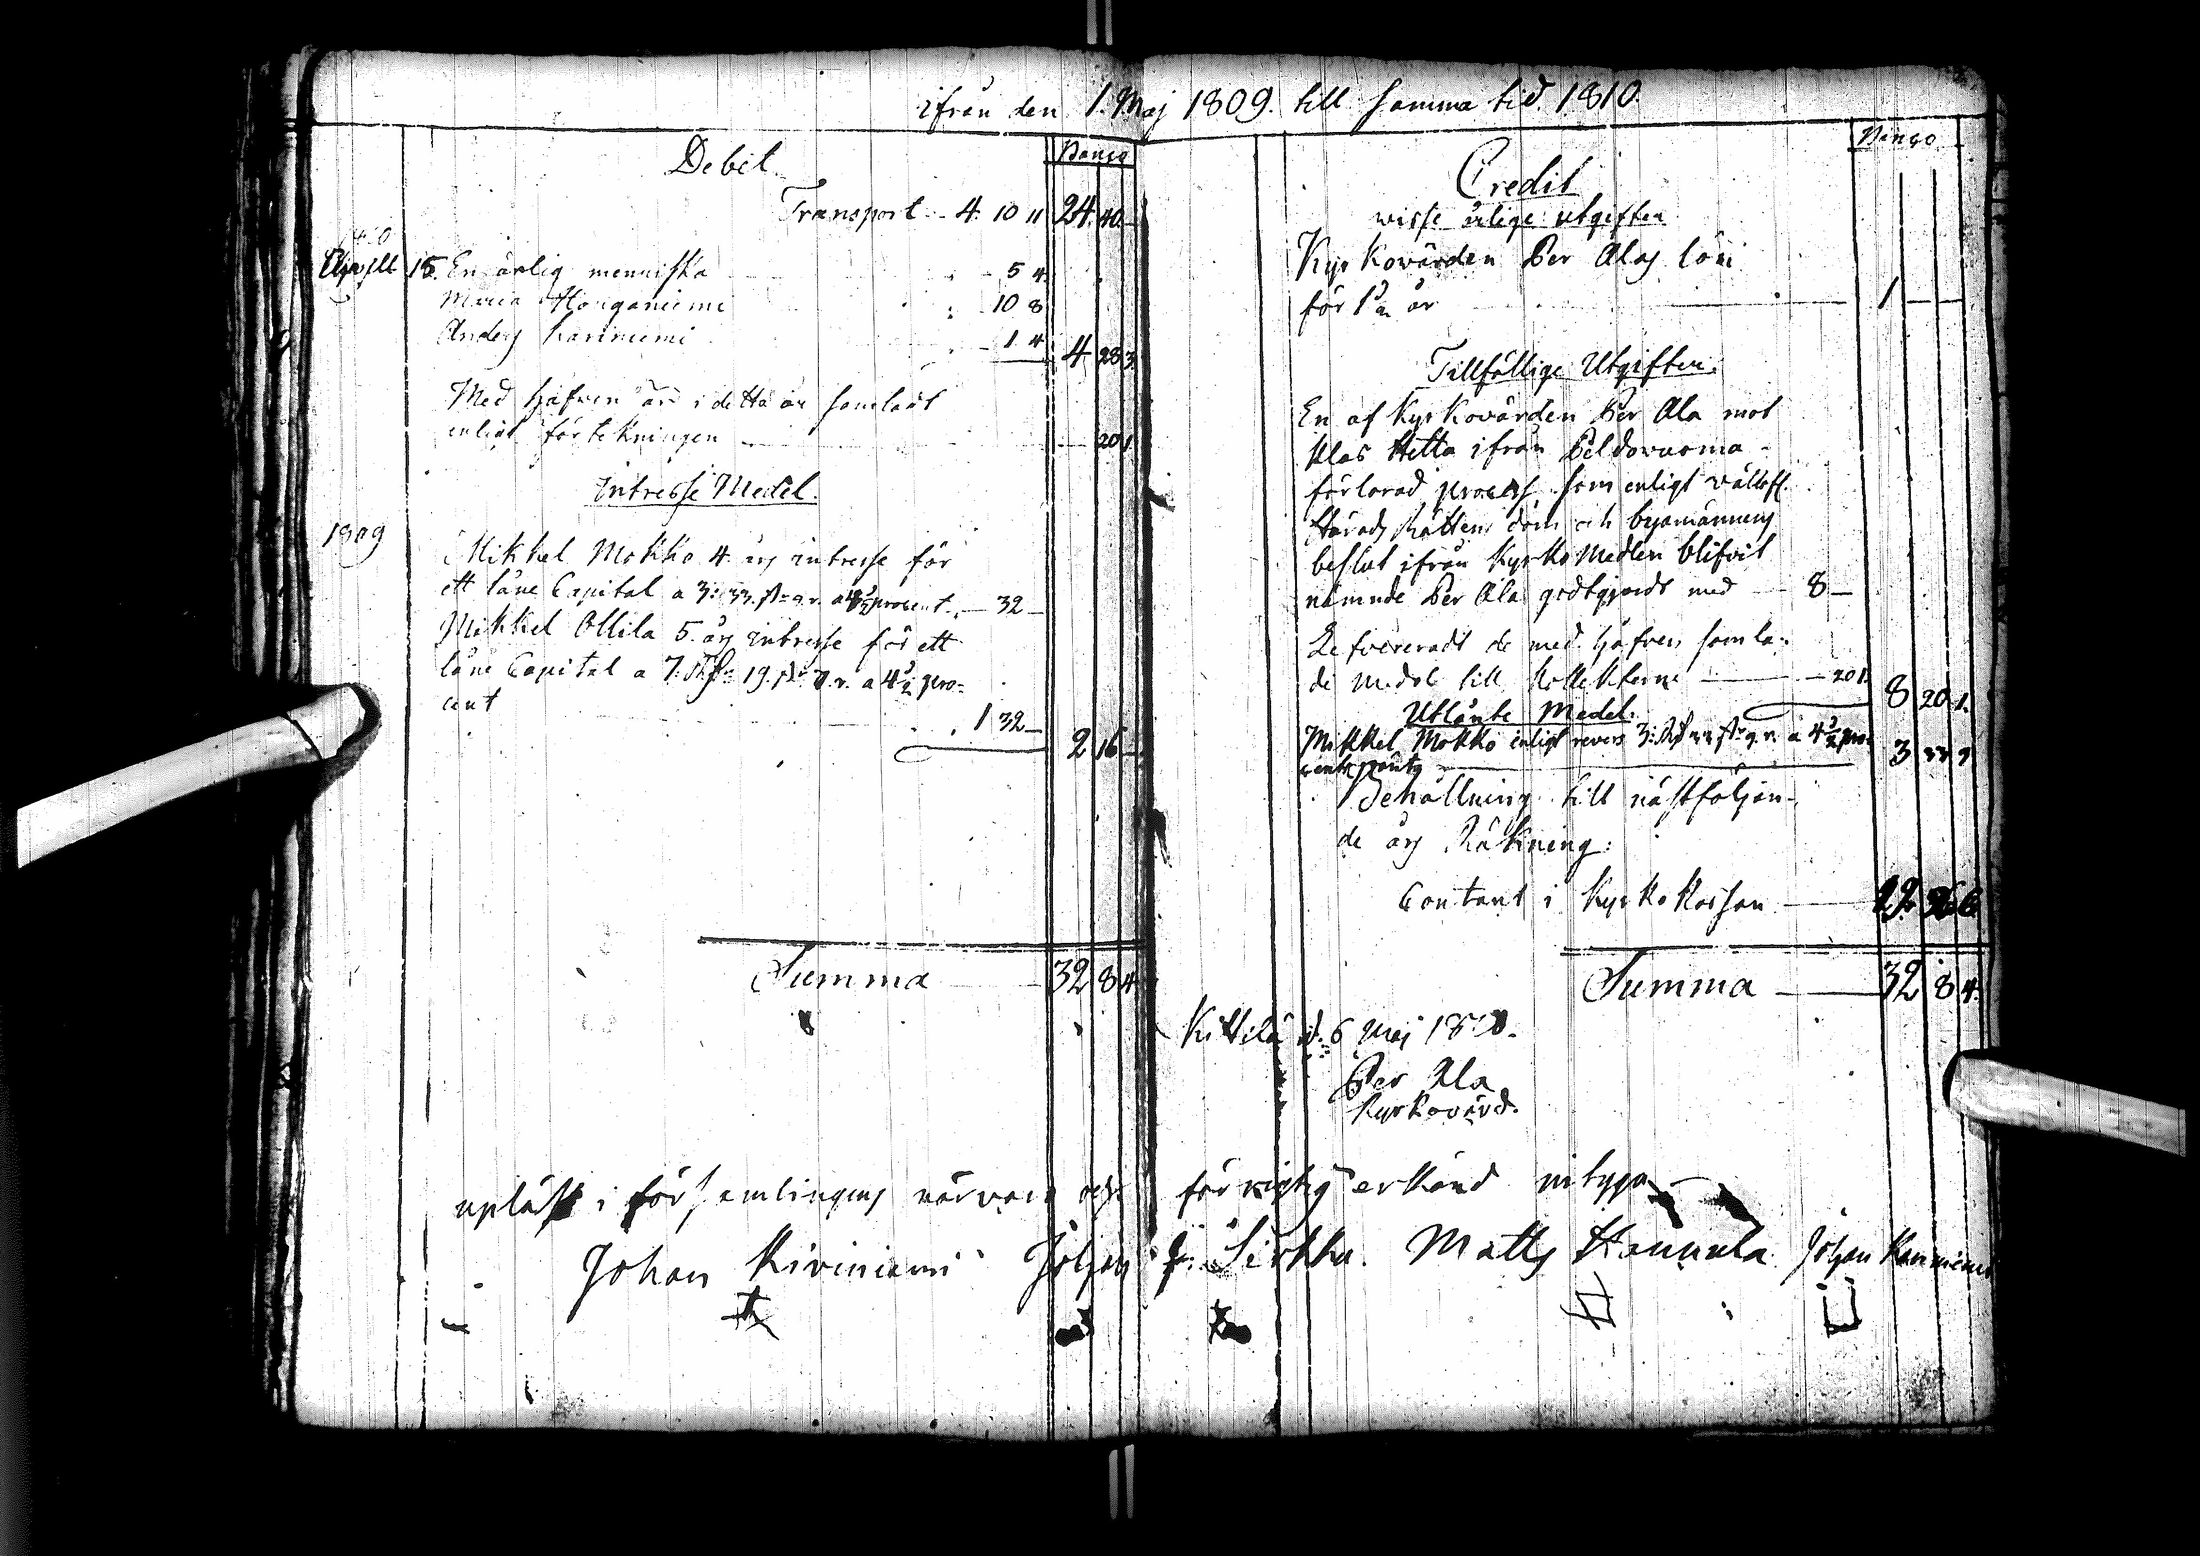 ifrån den 1. Maj 1809. till samma tid. 1810.
Debet.
Banco
Transport - 4. 10 11 24. 40.
1810
Aprill 15. En ärlig menniska - 5 4.
Maria Honganiemi - 10 8
Anders Kariniemi - 1 4
4 28 3.
Med håfven är i detta år samladt
enligt förtekningen - 20 1.
Intresse Medel.
1809
Mikkel Mokko 4. års intresse för
ett låne Capital a 3: 33. sk 9. r. a 4½ procent. - 32 -
Mikkel Ollila 5. års intresse för ett
låne Capital a 7. Rd 19. sk 7. r. a 4½ pro-
cent
1 32 -
2 16 -
Summa - 32 8 4
Banco
Credit
wisse årlige utgifter
Kyrkovärden Per Alas lön
för 1 år - 1 -
Tillfällige Utgifter.
En af Kyrkovärden Per Ala mot
Klas Hetta ifrån Peldovuoma
förlorad process, som enligt vällofl.
Härads Rättens dom och byamännens
beslut ifrån Kyrko Medlen blifvit
nämnde Per Ala godtgjordt med - 8 -
Lefvereradt de med håfven samla-
de Medel till Kollekterne - 20 1.
8 20 1.
Utlånte Medel.
Mikkel Mokko enligt revers 3: Rd 33 sk 9. r. a 4½ pro-
cents 3 33 9
Behållning till nästföljan-
de års Räkning:
Contant i Kyrko Kassan - 
Summa - 32 8 4.
Kittilä d. 6 Maj 1810.
Per Ala
Kyrkovärd.
upläst i församlingens närvaro och för riktig erkänd intyga
Johan Kiviniemi Johan Sirkka. Matts Hannula Johan Kariniemi